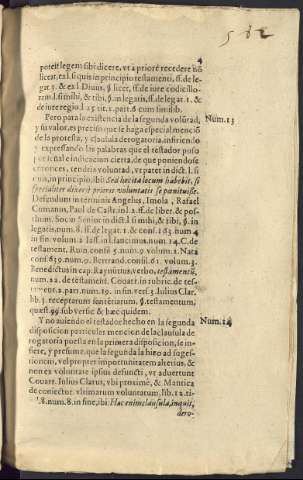 4
582
potest legem sibi dicere, vt a priore recedere nō
liceat, ex l. si quis in principio testamenti, ff. de le-
gat. 3. & ex l. Diuus, §. licet, ff. de iure codicillo-
rum. l. si mihi, & tibi, §. in legatis, ff. de legat. 1. &
de iure regio, l. 25. tit. 1. part. 6. cum similib.
Pero para la existencia de la segunda volūtad, Num. 13
y su valor, es preciso que se haga especial menciō
de la protesta, y clausula derogatoria, insiriendo
y expressando las palabras que el testador puso
señal e indicacion cierta, de que poniendose
entonces, tendria voluntad, vt patet in dict. l. si
quis, in principio, ibi: Sed ita ita locum habebit, si
specialiter dixerit prioris voluntatis se pœnituisse.
Defendunt in terminis Angelus, Imola, Rafael
Cumanus, Paul. de Castr. in l. 2. ff. de liber. & pos-
thum. Socin. Senior in dict. l. si mihi, & tibi, §. in
legatis, num. 8. ff. de legat. 1. & cons. 163. num. 4
in fin. volum. 2. Iass. in l. sancimus, num. 14. C. de
testament. Ruin. consil. 5. num. 9. volum. 2. Nata
cons. 639. num. 9. Bertrand. consil. 61. volum. 3.
Benedictus in cap. Raynutius, verbo, testamentū,
num. 22. de testament. Couarr. in rubric. de tes-
tament. 2. part. num. 19. in fin. vers. 3. Iulius Clar.
lib. 3. receptarum sententiarum, §. testamentum,
quæst. 99. sub versic. & hæc quidem.
Y no auiendo el testador hecho en la segunda Num. 14
disposicion particular mencion de la clausula de-
rogatoria puesta en la primera disposicion, se in-
fiere, y presume, que la segunda la hizo ad suges-
tionem, vel propter importunitatem alterius, &
non ex voluntate ipsius defuncti, vt aduertunt
Couarr. Iulius Clarus, vbi proximè, & Mantica
de coniectur. vltimarum voluntatum, lib. 12. ti-
t. 8. num. 8. in fine, ibi: Hac enim clausula, inquit,
dero-